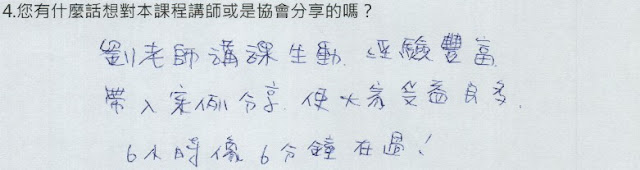 4.您有什麼話想對本課程講師或是協會分享的嗎？
劉老師講課生動. 經驗豐富
帶入案例分享. 使大家受益良多.
6小時像6分鐘在過！